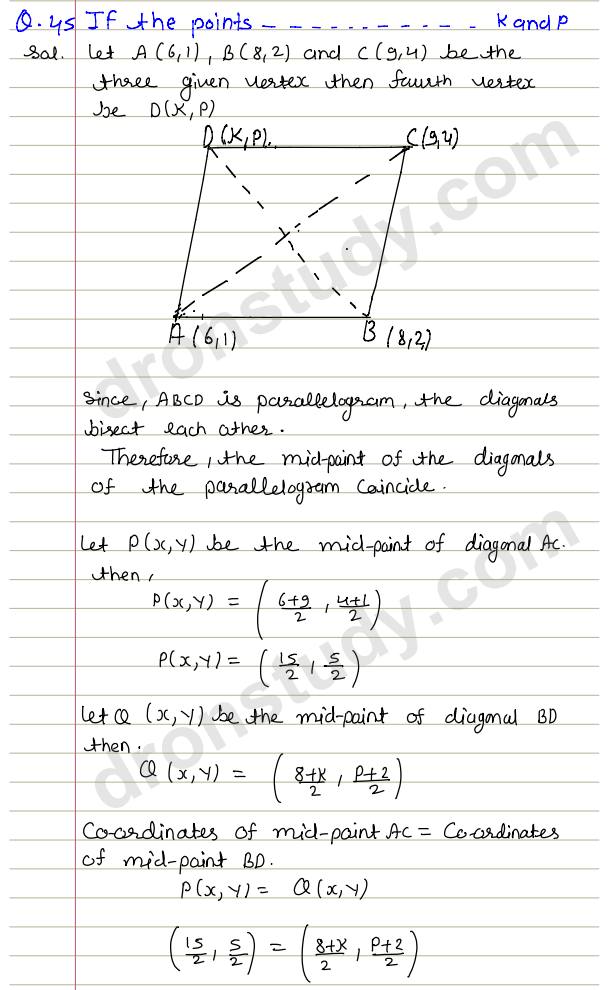 Q.45 If the points - - - - . - - - - - . - - K and P
Sol. Let A(6,1), B(8,2) and C(9,4) be the
three given vertex then fourth vertex
be D(K,P)
D(K,P) C(9,4)
A(6,1) B(8,2)
Since, ABCD is parallelogram, the diagonals
bisect each other.
Therefore, the mid-point of the diagonals
of the parallelogram Coincide.
Let P(x,y) be the mid-point of diagonal AC.
then,
P(x,y) = (6+9/2, 4+1/2)
P(x,y) = (15/2, 5/2)
Let Q (x,y) be the mid-point of diagonal BD
then.
Q(x,y) = (8+K/2, P+2/2)
Co-ordinates of mid-point AC = Co-ordinates
of mid-point BD.
P(x,y) = Q(x,y)
(15/2, 5/2) = (8+K/2, P+2/2)
dronstudy.com
dronstudy.com